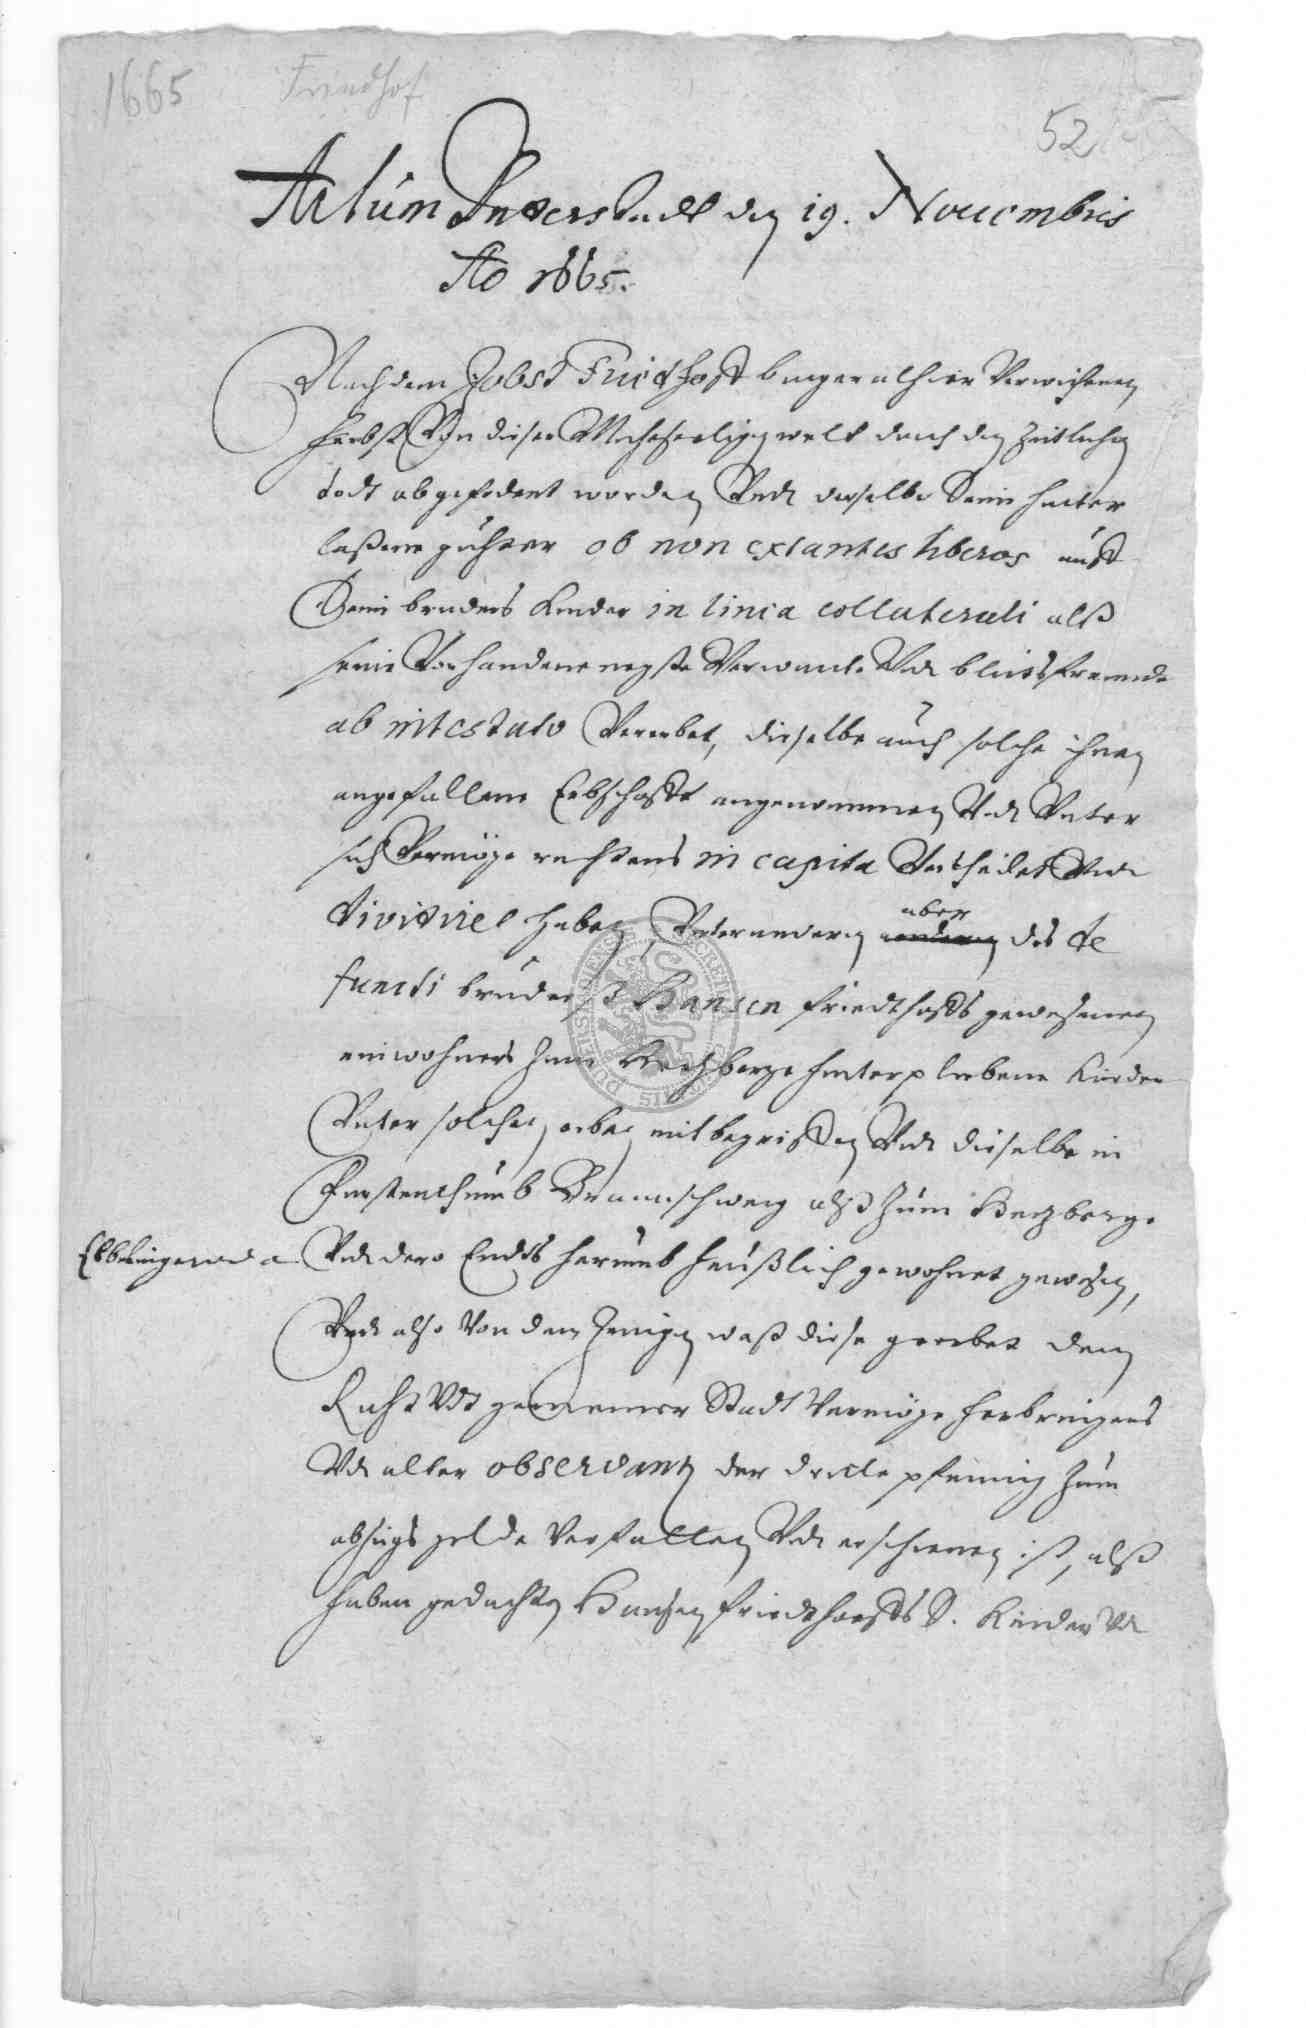 1665 Friedhof
52
Actum Duderstadt den 19. Novembris
Ao 1665.
Nachdem Jobst Friedhoff burger alhier verwichenen
herbst von dieser Müheseeligen welt durch den zeitlichen
todt abgefodert worden Undt derselbe Seine hinter
laßene güthere ob non extantes liberos auff
Seine bruders kinder in linea collaterali alß
seine vorhandene negste Verwante Und blutsfreunde
ab intestato Vererbet, dieselbe auch solche ihnen
angefallene Erbschafft angenommen Und Unter
sich Vermöge rechtens in capita Vertheilet Und
dividiret haben, Unter anderen aber des de
functi bruders Hansen Friedthoffs gewesenen
einwohners zum Hertzberge hinterpliebene Kinder
Unter solchen erben mitbegriffen Und dieselbe in
Fürstenthumb Braunschweig alß zum Hertzberge
Elbbingeroda Und dero Endts herumb heußlich gewohnet gewesen,
Undt also Von dem Jenigen waß diese geerbet dem
Raht Undt gemeiner Stadt Vermöge herbringens
Und alter observantz der dritte pfennig zum
abzugs gelde Verfallen Und erschienen ist, alß
haben gedachten Hansen Friedthoffs S. Kinder Und